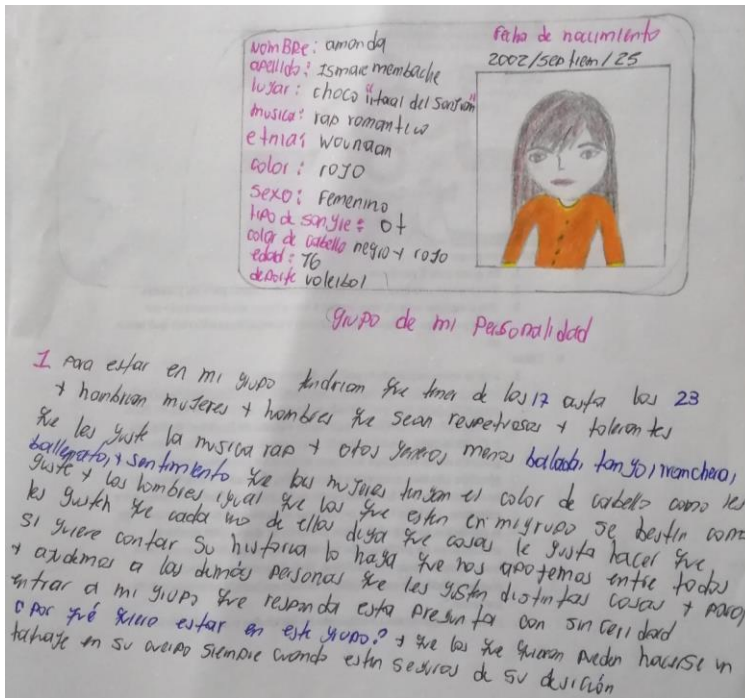 Nombre: amanda
Fecha de nacimiento
apellido: Ismare membache
2002/septiem/25
lugar: choco "litoral del
musica: rap romantico
etnia: wounaan
color: rojo
sexo: Femenino
tipo de sangre: o+
color de cabello negro y rojo
edad: 16
deporte voleibol
grupo de mi Personalidad
1 Para estar en mi grupo tendrian que tener de los 17 asta los 23
y hambrian mujeres y hombres que sean respetrosas y tolerantes
que les guste la musica rap y otos generos menos balada, tango, rranchera,
ballenato, y sentimiento que las mujeres tengan el color de cabello como les
guste y los hombres igual que los que esten en mi grupo se bestin como
les gusten que cada uno de ellos diga que cosas le gusta hacer que
si quiere contar su historia lo haga que nos apotemos entre todos
y ayudemos a las demás personas que les gusten distintas cosas y para
entrar a mi grupo que responda esta pregunta con sinceridad
¿Por qué quiero estar en este grupo? y que los que quieran pueden hacerse un
tatuaje en su cuerpo siempre cuando esten seguros de su desición